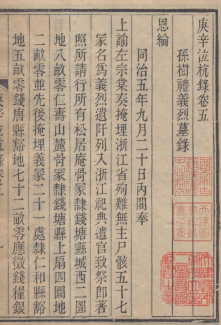 庚辛泣杭錄卷五
孫樹禮義烈墓錄
恩綸
同治五年九月二十日內閣奉
上諭左宗棠奏掩埋浙江省殉難無主尸骸五十七
冢名爲義烈遺阡列入浙江祀典遣官致祭卽著
照所請行所有松居庵隷錢塘縣城西二圖
地八畝零仁壽山麓骨冢隷錢塘縣上扇四圖地
二畝零並先後掩埋義冢二十一處隷仁和縣豁
地五畝零錢塘縣豁地七十二畝零應徵錢糧銀